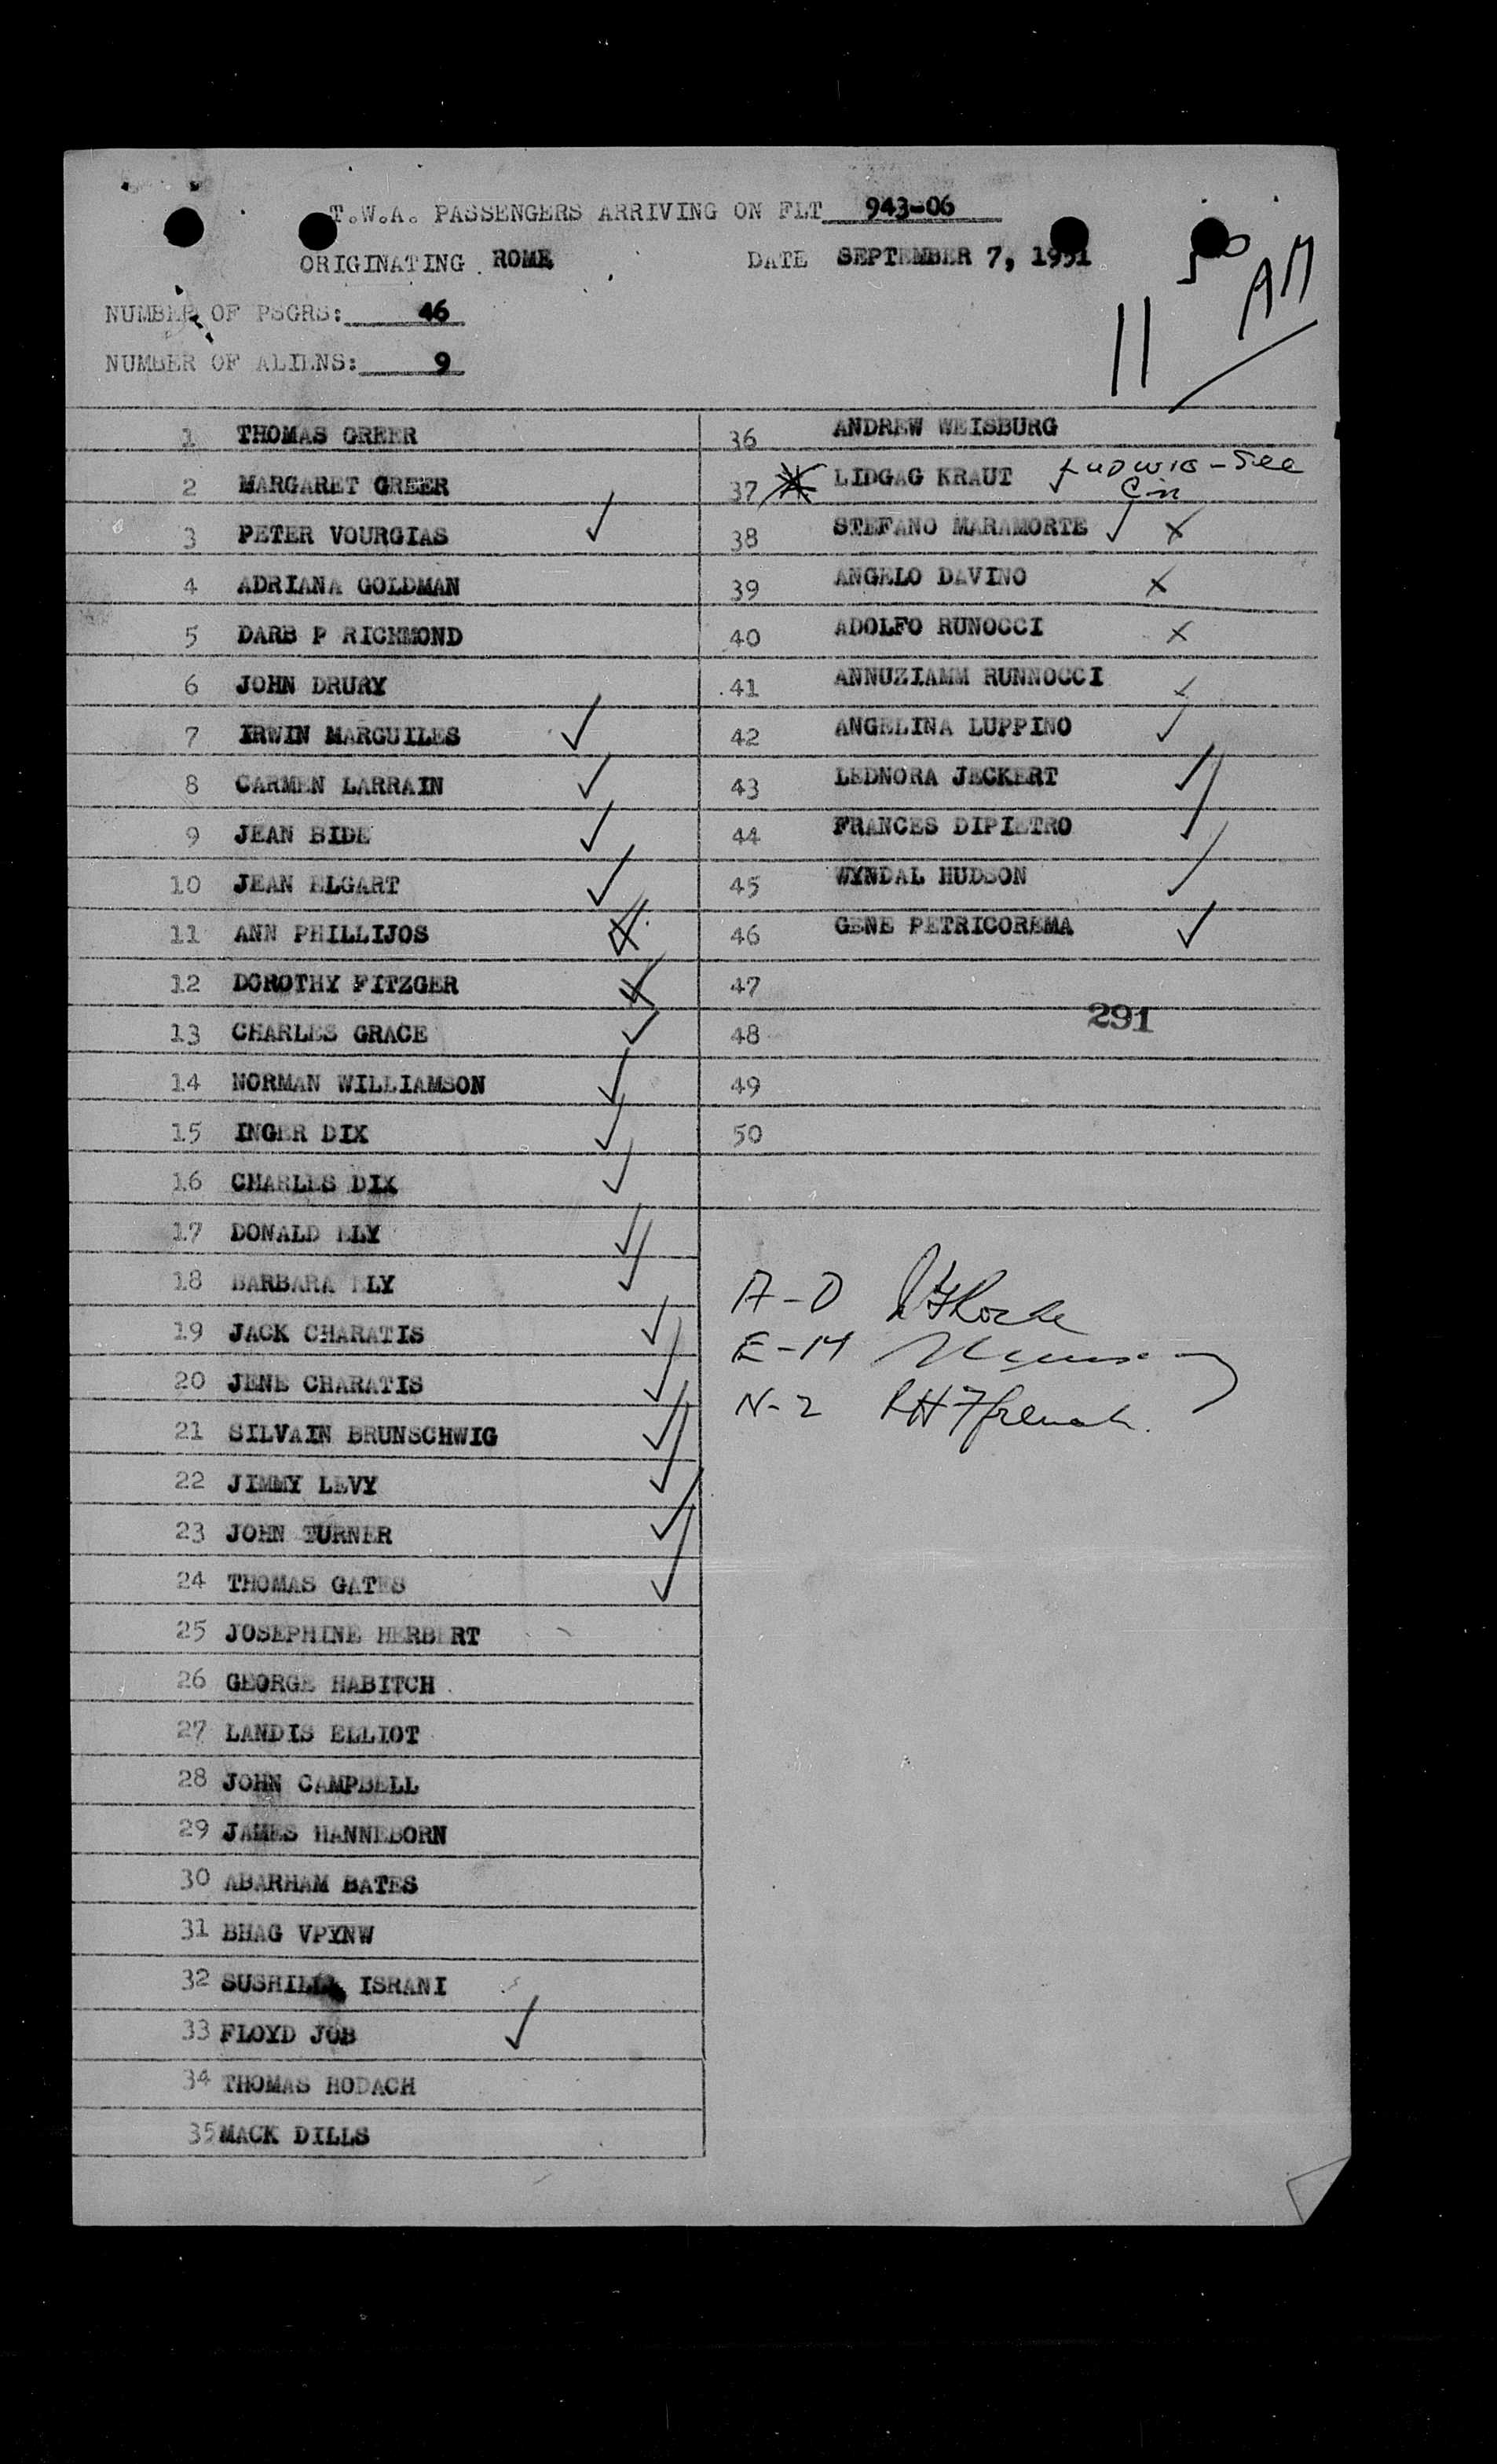 T.W.A. PASSENGERS ARRIVING ON FLT 943-06
ORIGINATING ROME DATE SEPTEMBER 7, 1951
NUMBER OF PSGRS: 46
NUMBER OF ALIENS: 9
11 50 AM
1 THOMAS GREER
2 MARGARET GREER
3 PETER VOURGIAS
4 ADRIANA GOLDMAN
5 DARB P RICHMOND
6 JOHN DRURY
7 IRWIN MARGUILES
8 CARMEN LARRAIN
9 JEAN BIDE
10 JEAN ELGART
11 ANN PHILLIJOS
12 DOROTHY FITZGER
13 CHARLES GRACE
14 NORMAN WILLIAMSON
15 INGER DIX
16 CHARLES DIX
17 DONALD ELY
18 BARBARA ELY
19 JACK CHARATIS
20 JENE CHARATIS
21 SILVAIN BRUNSCHWIG
22 JIMMY LEVY
23 JOHN TURNER
24 THOMAS GATES
25 JOSEPHINE HERBERT
26 GEORGE HABITCH
27 LANDIS ELLIOT
28 JOHN CAMPBELL
29 JAMES HANNEBORN
30 ABARHAM BATES
31 BHAG VPYNW
32 SUSHILLA ISRANI
33 FLOYD JOB
34 THOMAS HODACH
35 MACK DILLS
36 ANDREW WEISBURG
37 LIDGAG KRAUT LUDWIG - See
38 STEFANO MARAMORTE
39 ANGELO DAVINO
40 ADOLFO RUNOCCI
41 ANNUZIAMM RUNNOCCI
42 ANGELINA LUPPINO
43 LEDNORA JECKERT
44 FRANCES DIPIETRO
45 WYNDAL HUDSON
46 GENE PETRICOREMA
47
291
48
49
50
A-D
E-M
N-Z